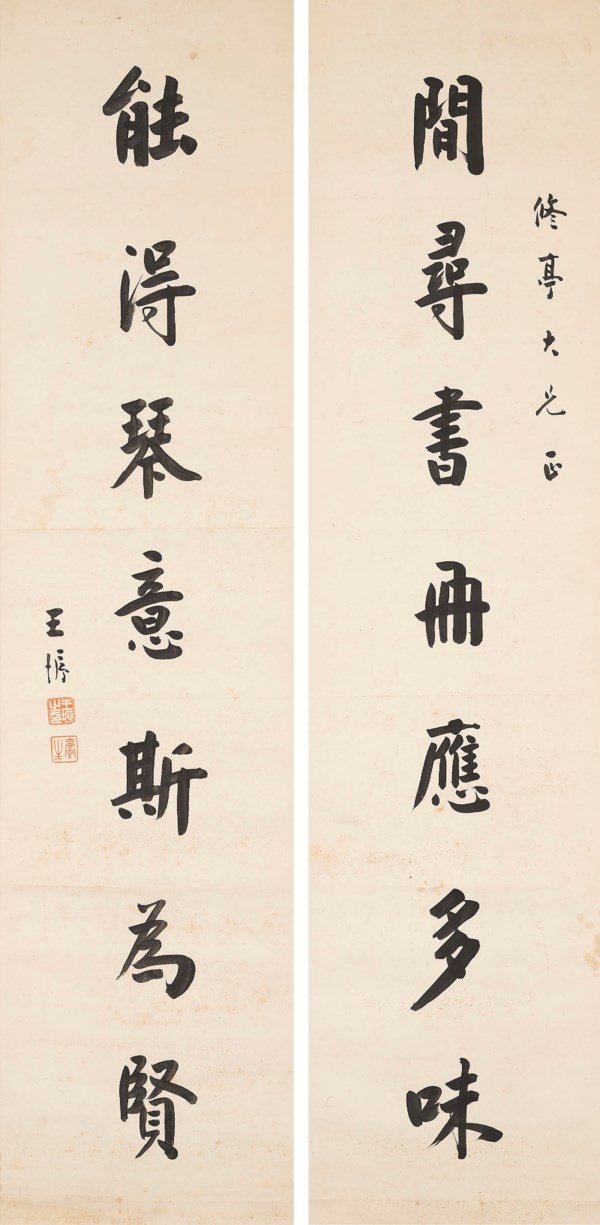 修亭大兄正
閒尋書冊應多味
能得琴意斯為賢
王垿